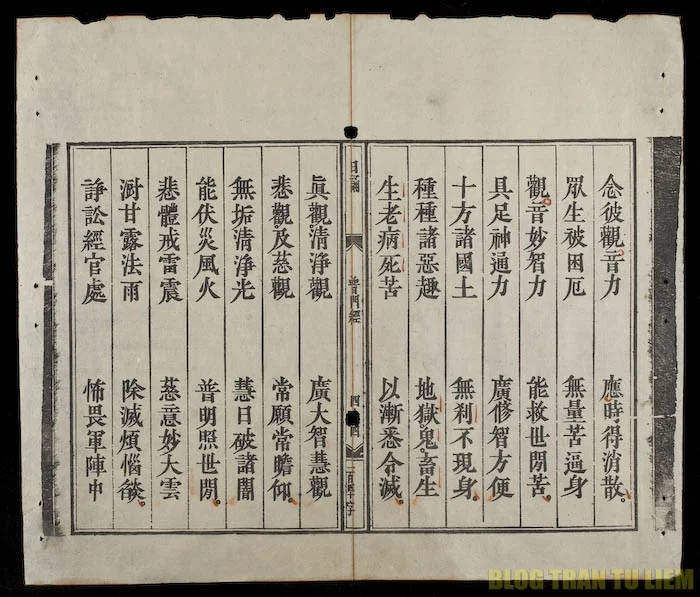 念彼觀音力 應時得消散。
眾生被困厄 無量苦逼身
觀音妙智力 能救世閒苦。
具足神通力 廣修智方便
十方諸國土 無剎不現身。
種種諸惡趣 地獄鬼畜生
生老病死苦 以漸悉令滅。
日誦 普門經 四
眞觀清淨觀 廣大智慧觀
悲觀及慈觀 常願常瞻仰。
無垢清淨光 慧日破諸闇
能伏災風火 普明照世閒。
悲體戒雷震 慈意妙大雲
澍甘露法雨 除滅煩惱燄。
諍訟經官處 怖畏軍陣中
BLOG TRAN TU LIEM